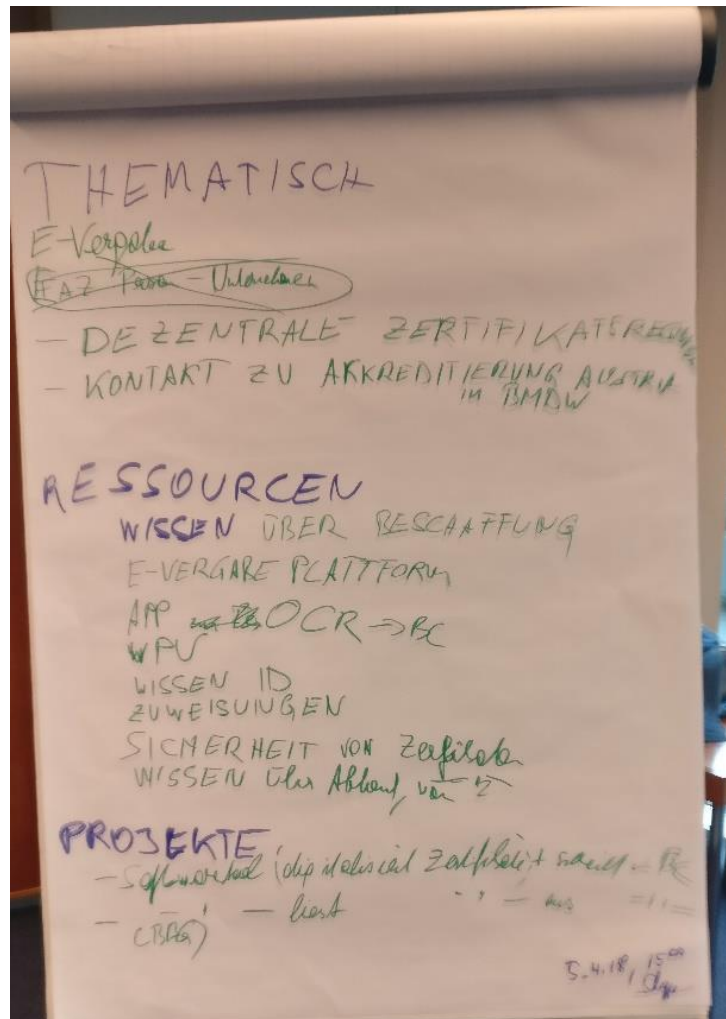 THEMATISCH
E-Vergabe
- Unternehmen
- DEZENTRALE ZERTIFIKATSREGISTER
- KONTAKT ZU AKKREDITIERUNG AUSTRIA
in BMDW
RESSOURCEN
WISSEN ÜBER BESCHAFFUNG
E-VERGABE PLATTFORM
APP OCR → BC
WPV
WISSEN ID
ZUWEISUNGEN
SICHERHEIT VON Zertifikaten
WISSEN über Ablauf, von Z
PROJEKTE
- Softwaretool (digitalisiert Zertifikat + schreibt
- (BBG) - liest - aus
5.4.18, 15⁰⁰